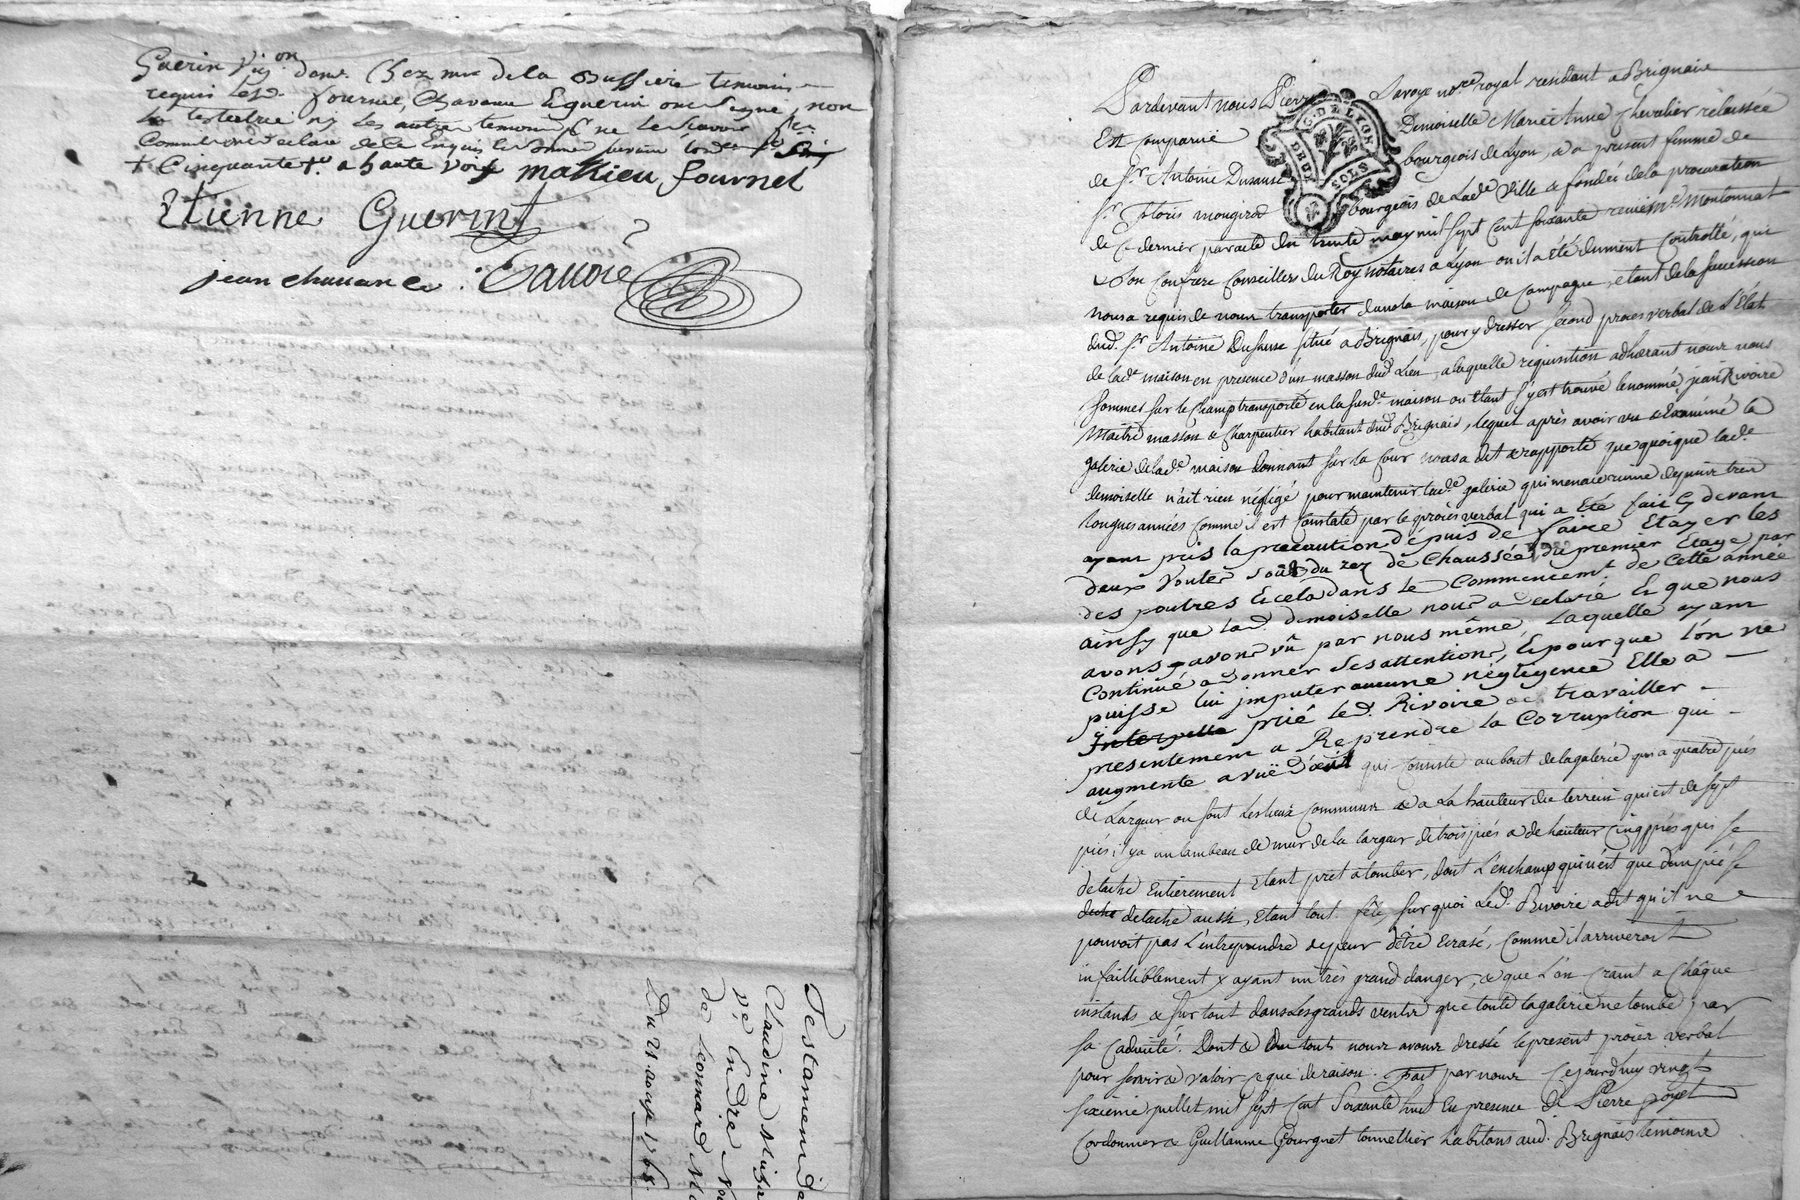 Guerin Vig.on dem.t Chez mr de la Bussiere temoins
requis led. fournel, Chavanne & guerin ont signé, non
la testatrice ny les autres temoins pr ne le scavoir
Comme ont declaré de ce Enquis
+ Cinquante +. a haute voix mathieu fournel
Etienne Guerin
jean chauanne. Lauoié
Testament de
Claudine
ve. Endre
de Leonnard
Du 21 aoust 1768.
Pardevant nous Pierre Lavoye no.re royal rendant a Brignais
Est comparüe Demoiselle Marie Anne Chevalier relaissée
de S.r Antoine Dusause bourgeois de Lyon, & a present femme de
S.r floris mongirod bourgeois de Lad.e Ville & fondée de la procuration
de Ce dernier par acte du trente may mil sept Cent soixante reçu M.e Montonnat
& Son Confrere Conseillers du Roy notaires a Lyon ou il a été dument Controllé, qui
nous a requis de nous transporter dans la maison de Campagne, etant de la succession
dud. S.r Antoine Dusause situé a Brignais, pour y dresser second procès verbal de l'État
de lad.e maison en presence d'un masson dud. Lieu, a laquelle requisition adherant nous nous
sommes sur le Champ transporté en la susd.e maison ou Etant s'y est trouvé le nommé jean Rivoire
Maitre masson & Charpentier habitant dud. Brignais, lequel après avoir vu & Examiné la
galerie de lad.e maison donnant sur la Cour nous a dit & rapporté que quoique lad.e
demoiselle n'ait rien négligé pour maintenir lad.e galerie qui menace ruine depuis tres
longues années comme il est Constaté par le procès verbal qui a Eté fait Cy devant
ayant pris la precaution depuis de faire Etayer les
deux Voutes sous du rez de Chaussée, du premier Etage par
des poutres & cela dans le Commencemt de Cette année
ainsy que lad. demoiselle nous a declaré & que nous
avons avons vû par nous même, Laquelle ayant
Continué a donner ses attentions, & pour que l'on ne
puisse lui imputer aucune négligence Elle a
Interpelle prié led. Rivoire de travailler
presentement a Reprendre la Corruption qui
augmente a vuë d'œuil qui Consiste au bout de la galerie qui a quatre piés
de Largeur ou sont les lieux Communs & a La hauteur du terrein qui est de sept
piés, il y a un lambeau de mur de la largeur de trois piés & de hauteur Cinq piés qui se
detache Entierement Etant pret a tomber, dont L'enchamp qui n'est que d'un pié se
detache aussi, Etant tout felé, sur quoi Led. Rivoire a dit qu'il ne
pouvoit pas L'entreprendre de peur d'être Ecrasé, Comme il arriveroit
infailliblement y ayant un très grand danger, & que L'on Craint a Châque
instands & sur tout dans les grands vents que toute la galerie ne tombe, par
sa Caducité. Dont & Du tout nous avons dressé le present procès verbal
pour servir & valoir ce que de raison. Fait par nous Cejourdhuy vingt
sixième juillet mil sept Cent Soixante huit En presence de Pierre poyet
Cordonnier & Guillaume Gourguet tonnellier habitans aud. Brignais temoins
G. DE LYON
DEUX
SOLS